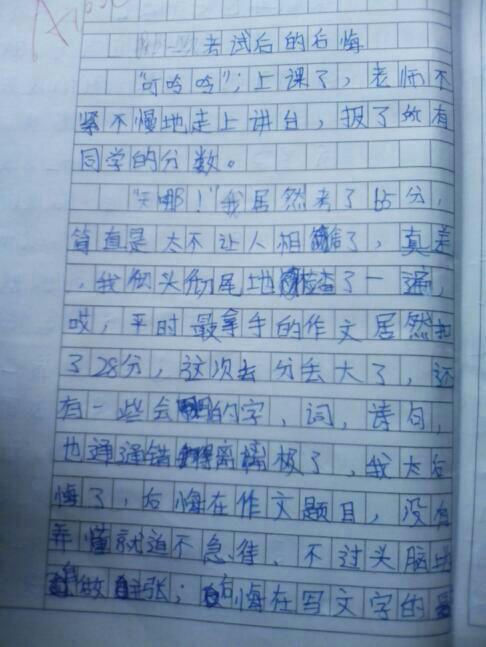 考试后的后悔
"叮呤呤"；上课了，老师不
紧不慢地走上讲台，报了所有
同学的分数。
"天哪！"我居然考了65分，
简直是太不让人相信了，真差
，我彻头彻尾地检查了一遍，
哎，平时最拿手的作文居然扣
了28分，这次丢分丢大了，还
有一些会的字、词，诗句，
也通通错得离谱极了，我太后
悔了，后悔在作文题目，没有
弄懂就迫不急待、不过头脑地
自做主张；后悔在写文字的